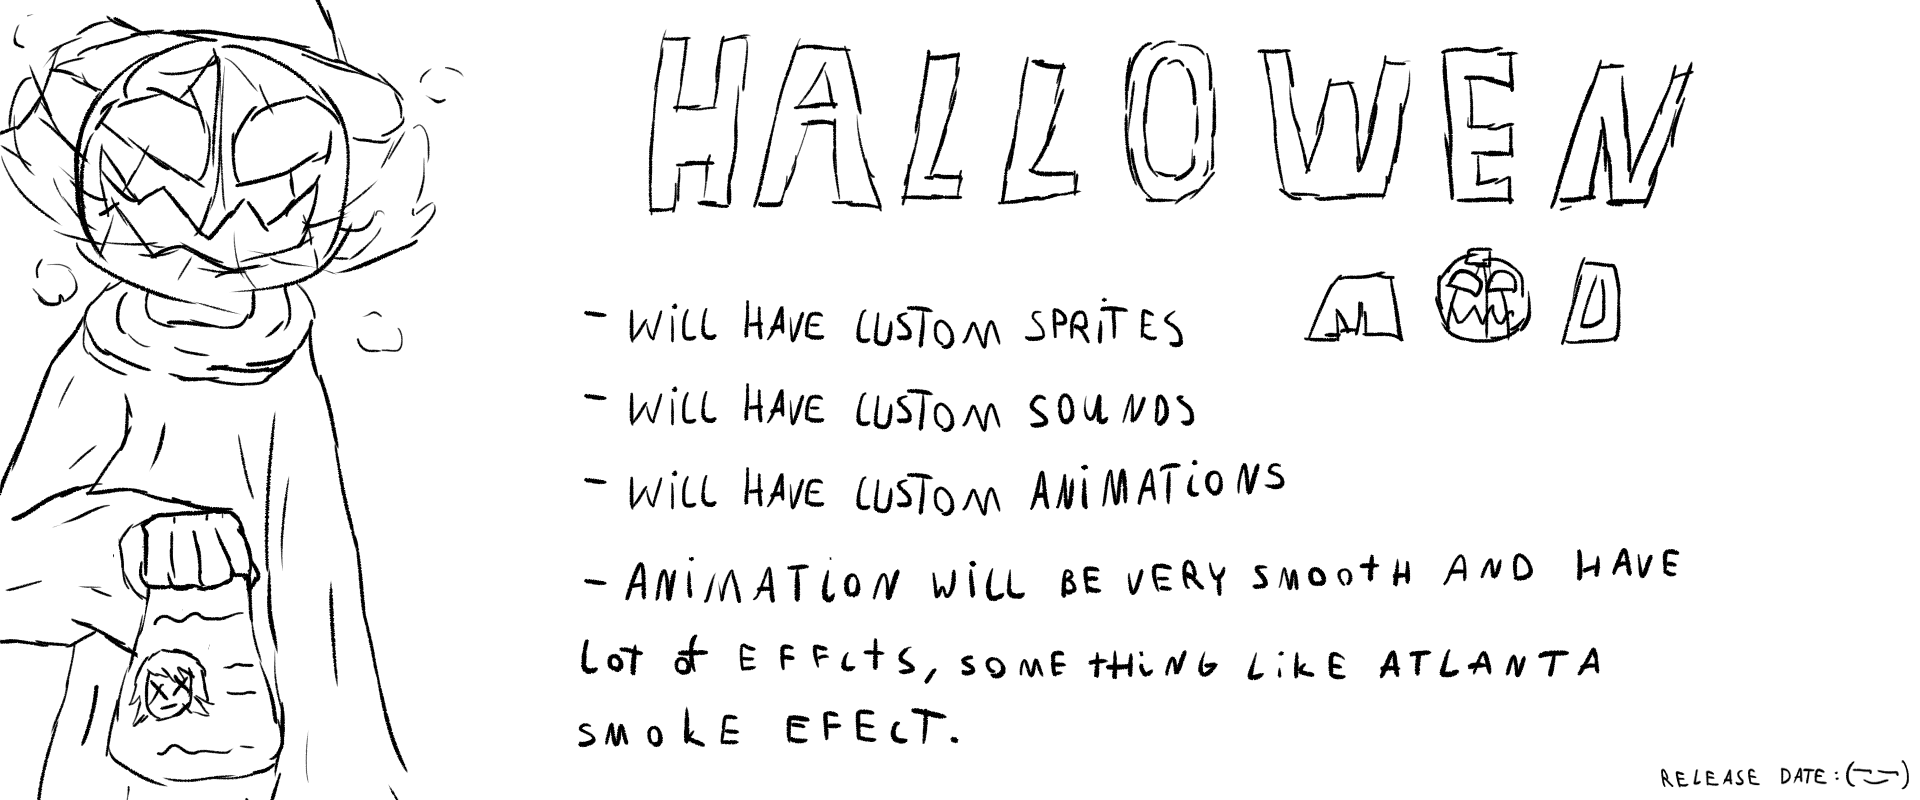 HALLOWEN
MOD
- WiLL HAVE CUSTOM SPRiTES
- WiLL HAVE CUSTOM SOUNDS
- WiLL HAVE CUSTOM ANiMATiONS
- ANiMATiON WiLL BE VERY SMOOtH AND HAVE
LOT of EFFEctS, SOME tHiNG LikE ATLANTA
SMOkE EFECT.
RELEASE DATE:(¬‿¬)